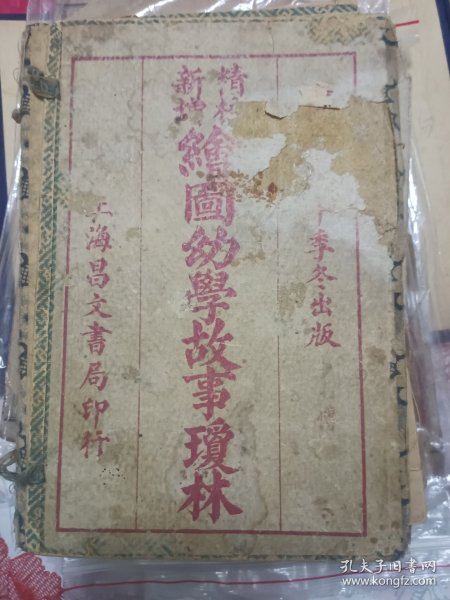 季冬出版
精校
新增
繪圖幼學故事瓊林
上海昌文書局印行
孔夫子旧书网
www.kongfz.com